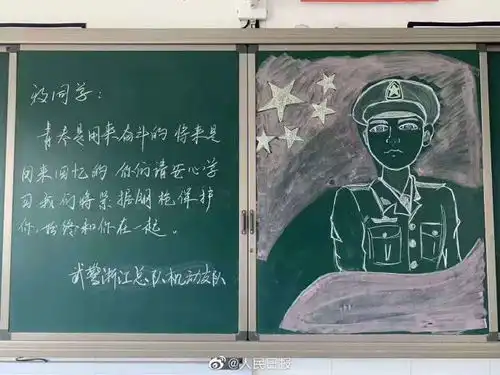 致同学：
青春是用来奋斗的 将来是
用来回忆的 你们请安心学
习我们将紧握钢枪保护
你,始终和你在一起。
武警浙江总队机动支队
@人民日报